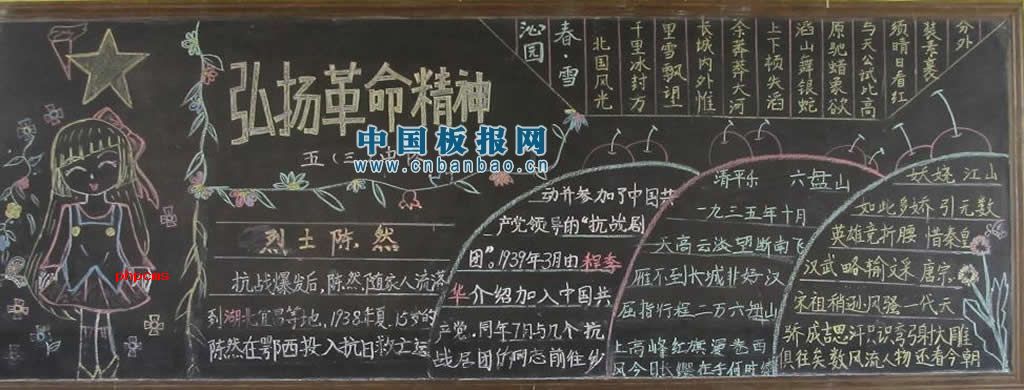 弘扬革命精神
五(三)班
中国板报网
www.cnbanbao.cn
phpcms
烈士陈然
抗战爆发后,陈然随家人流落
到湖北宜昌等地,1938年夏,15岁的
陈然在鄂西投入抗日救亡运
动并参加了中国共
产党领导的“抗战剧
团”,1939年3月由程李
华介绍加入中国共
产党.同年7月与几个抗
战剧团的同志前往
沁园
春·雪
北国风光
千里冰封万
里雪飘望
长城内外惟
余莽莽大河
上下顿失滔
滔山舞银蛇
原驰蜡象欲
与天公试比高
须晴日看红
装素裹
分外
妖娆江山
如此多娇引无数
英雄竞折腰惜秦皇
汉武略输文采唐宗
宋祖稍逊风骚一代天
骄成吉思汗只识弯弓射大雕
俱往矣数风流人物还看今朝
清平乐 六盘山
一九三五年十月
天高云淡望断南飞
雁不到长城非好汉
屈指行程二万六盘山
上高峰红旗漫卷西
风今日长缨在手何时缚